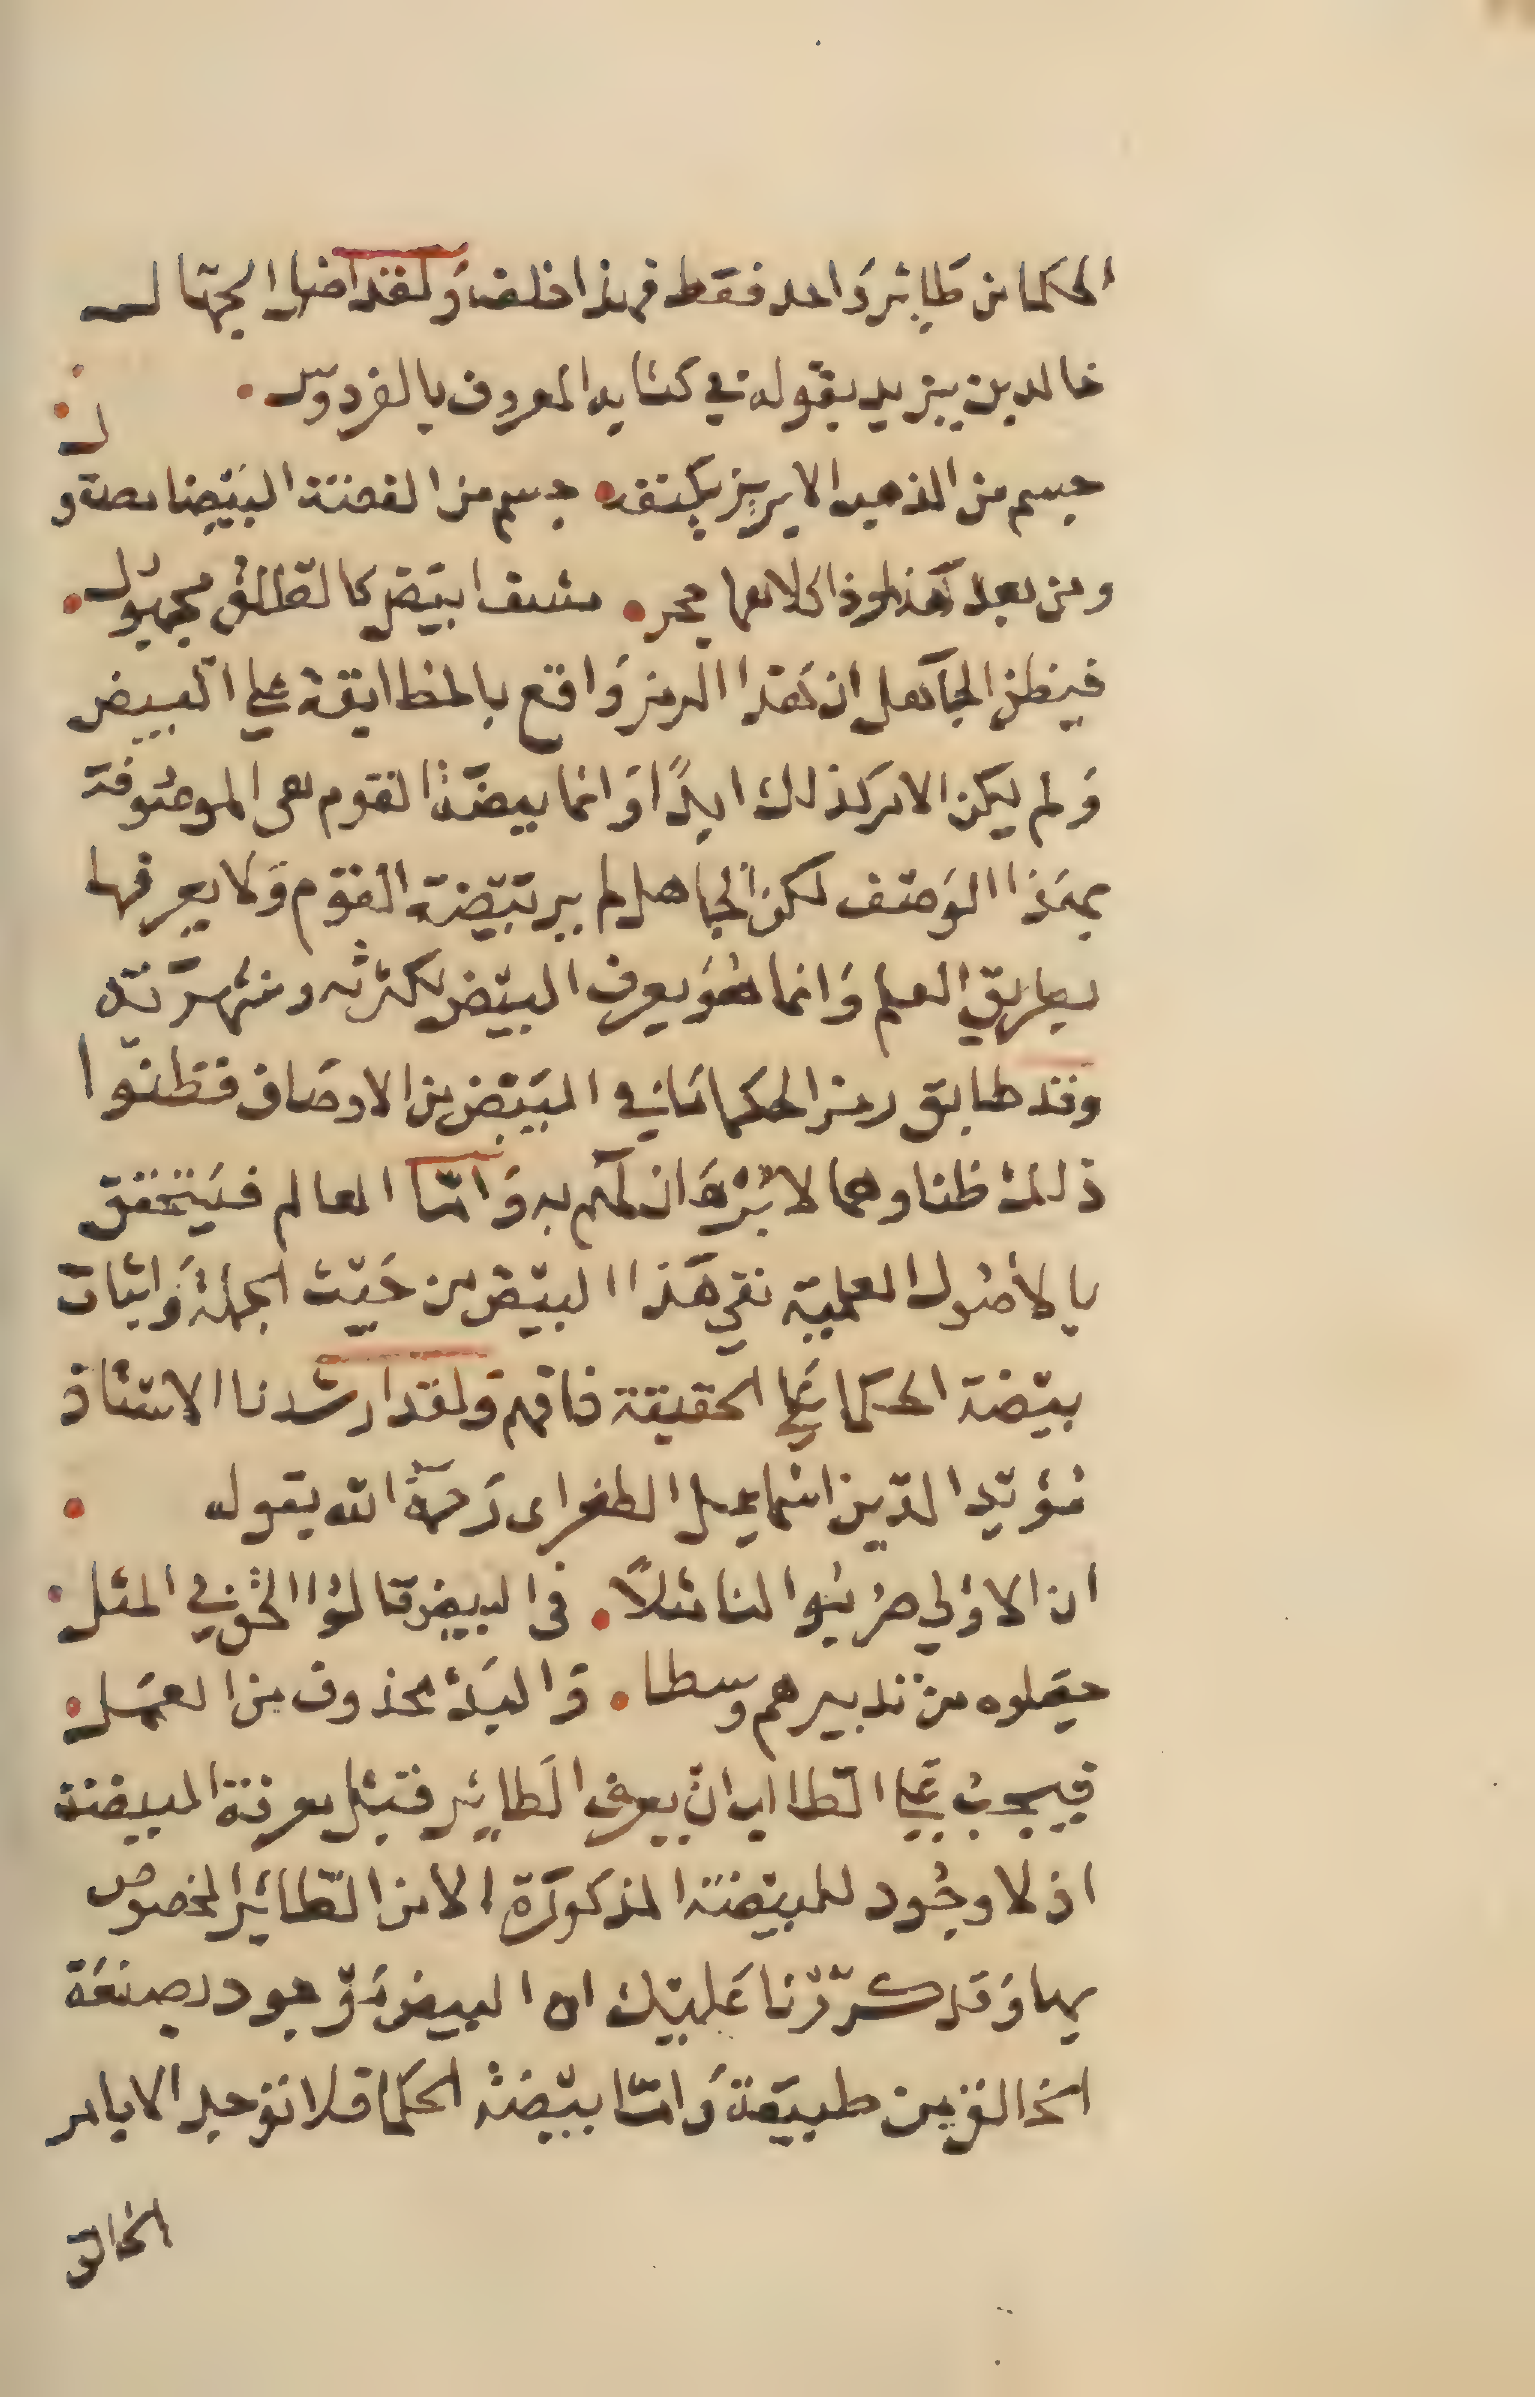 الحكما من طايرَ واحد فقط فهذا خلف وَلقد اضل الجهال
خالد بن يزيد بقوله في كتابه المعروف بالفردوس
جسم من الذهب الابريز يكنفه جسم من الفضة البيضا مصقو
ل
ومن بعد هذا وذا كلاهما محر مشف ابيض كالطلق مجهول
فيظن الجاهل ان هذا الرمز وَاقع بالمطابقة على البيض
وَلم يكن الامر كذلك ابدًا وَانما بيضة القوم هى الموصوفة
بهذا الوَصف لكن الجاهل لم ير بيضة القوم وَلا يعرفها
بطريق العلم وَانما هُوَ يعرف البيض لكثرته وشهرته
وقد طابق رمز الحكما مَا في البيض من الاوصَاف فظنوا
ذلك ظنا وهما لا بُرهَان لهم به وَامّا العالم فيَتحقق
بالأصُول العلمية نفي هَذا البيض من حَيث الجملة وَاثبات
بيضة الحكما عَلى الحقيقة فافهم وَلقد ارشدنا الاستاذ
مُؤيد الدّين اسمَاعيل الطغراى رَحمهُ الله بقوله
ان الاوُلي ضرَبُوا لنا مثلاً في البيض قالوُا الحق في المثل
جعَلوه من تدبيرهم وسطا وَالبَدءُ محذوف من العمَل
فيجبُ عَلى الطالب انّ يعرف الطايِر قبل معرفة البيضة
اذ لا وجُود للبيضة المذكورَة الا من الطائر المخصوص
بها وَقد كرّرنا عَليك ان البيض مَوجود بصنعَة
الخالق من طبيعَة وَامّا بيضة الحكما فلا توجد الا بامر
الخالق